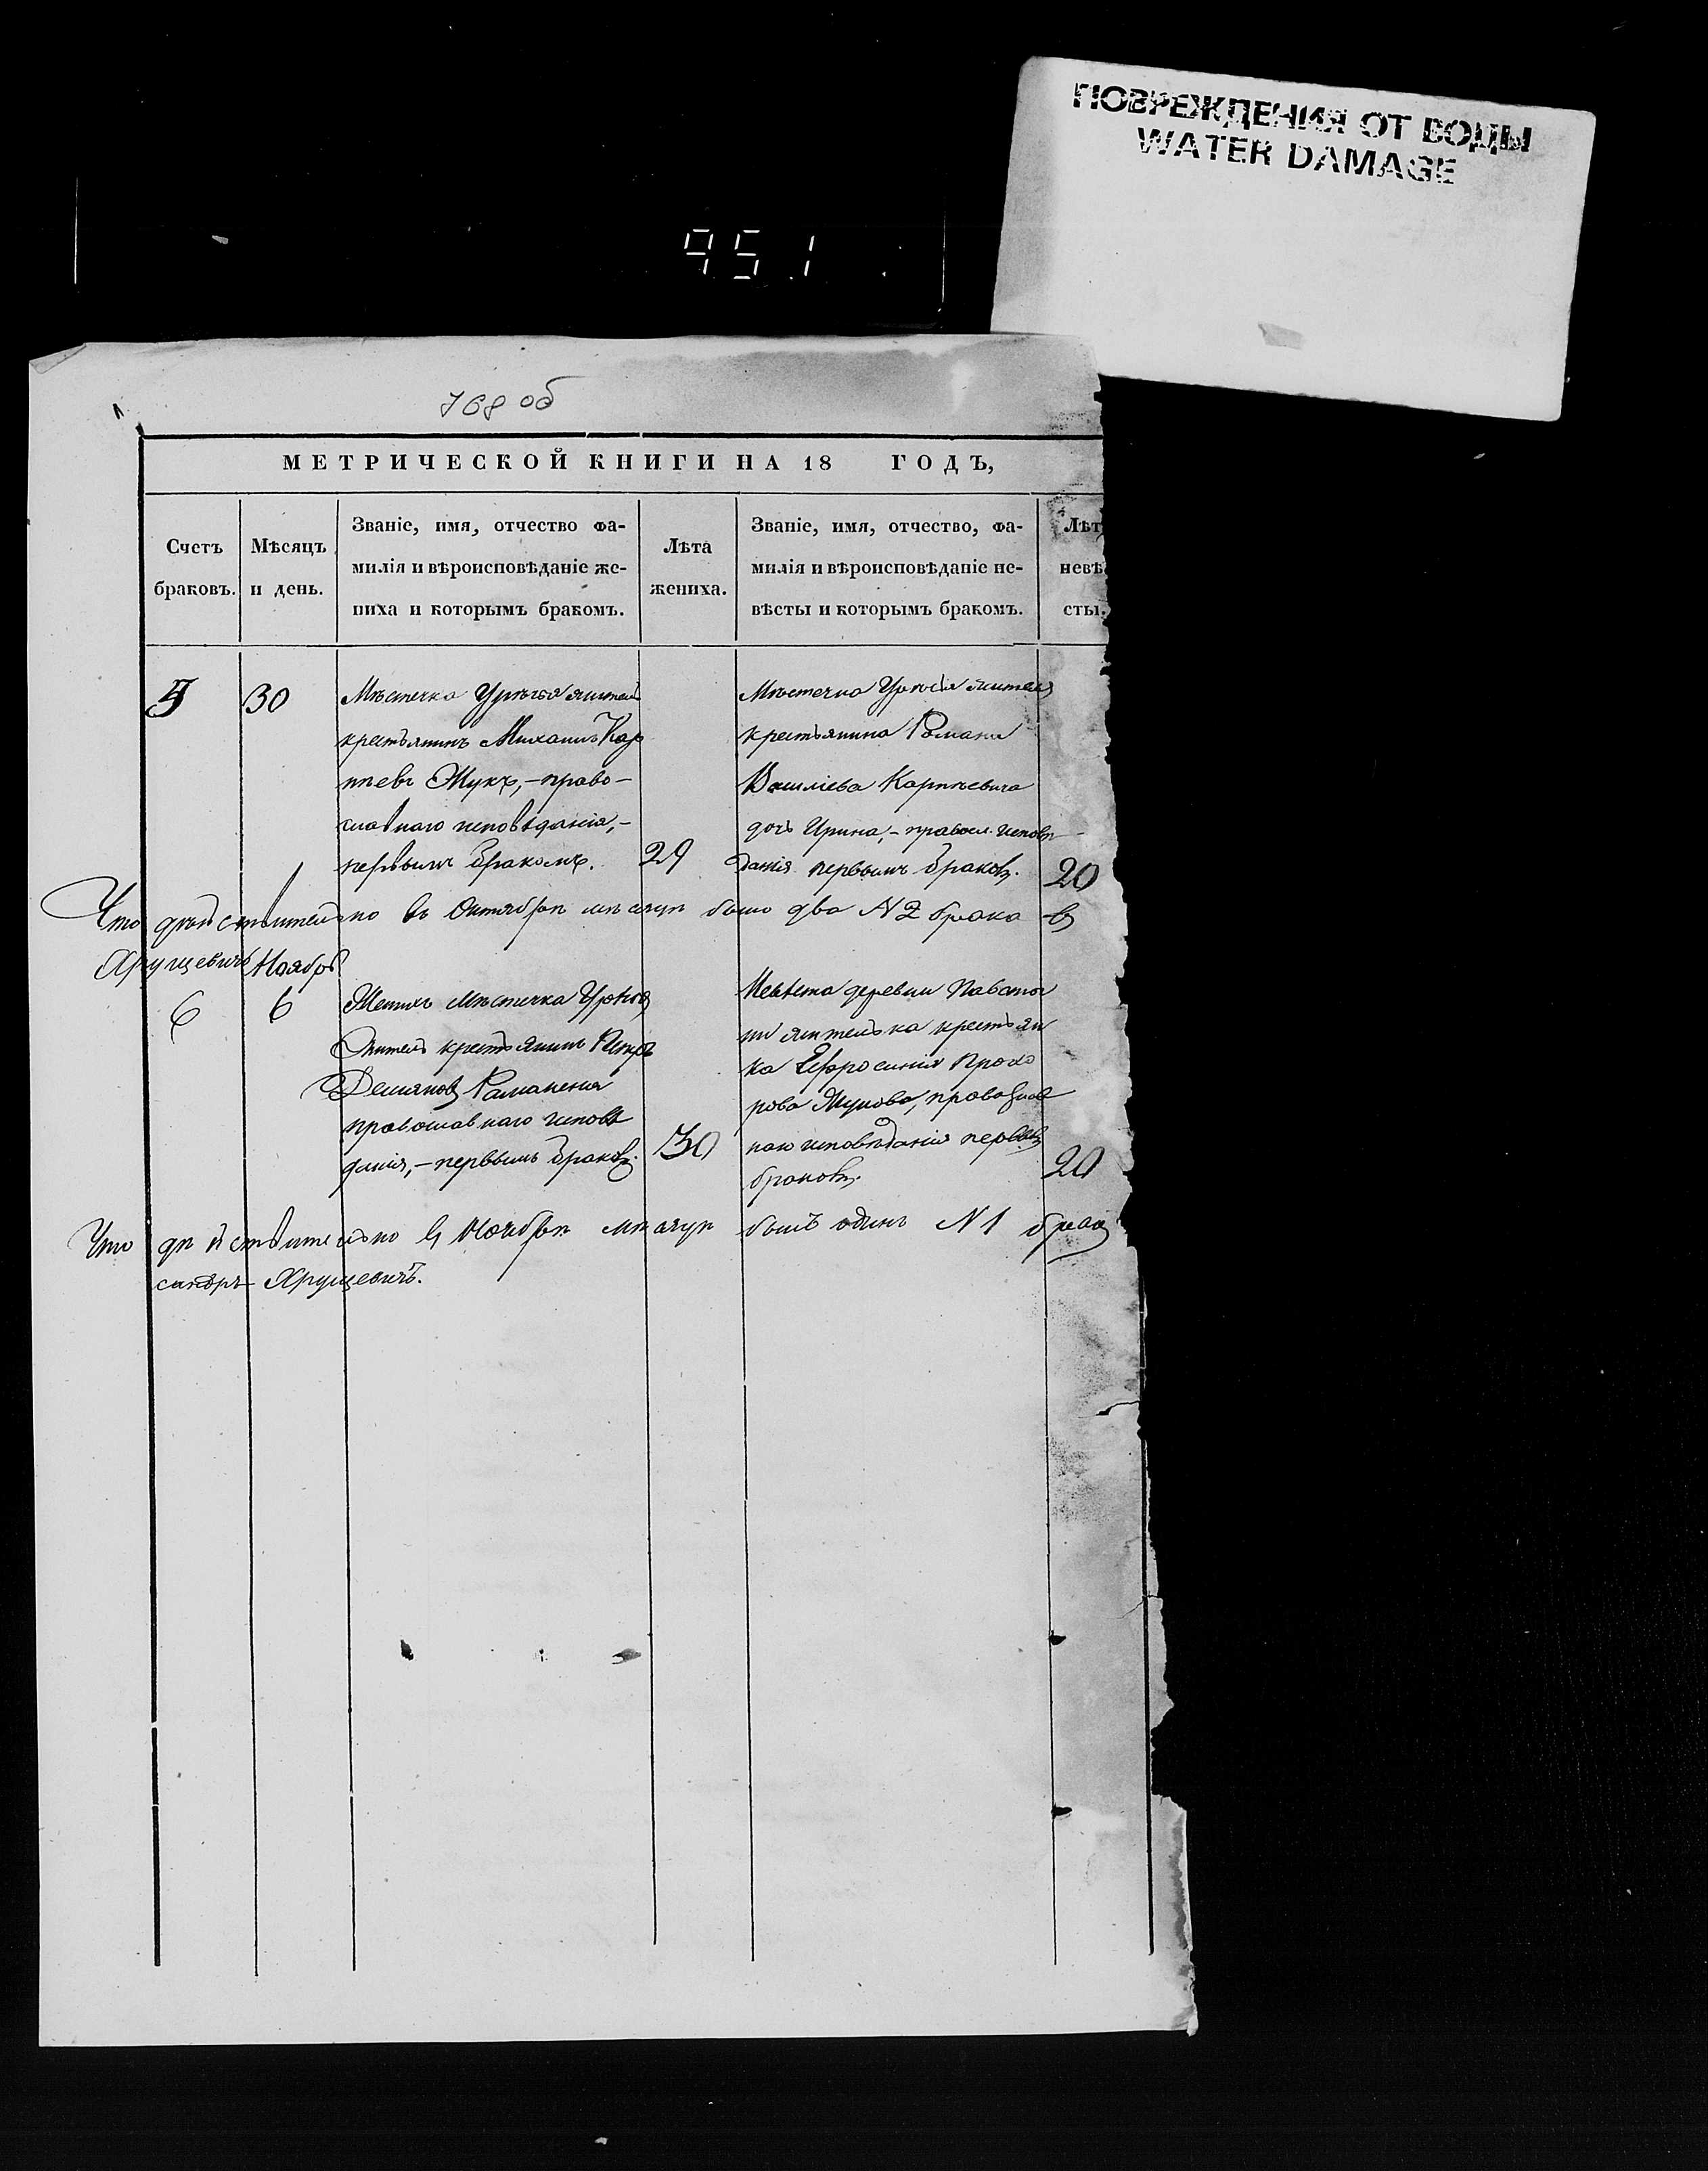 ПОВРЕЖДЕНИЯ ОТ ВОДЫ
WATER DAMAGE
951
768 об
МЕТРИЧЕСКОЙ КНИГИ НА 18 ГОДЪ,
Счетъ
браковъ.
Мѣсяцъ
и день.
Званіе, имя, отчество фа-
милія и вѣроисповѣданіе же-
ниха и которымъ бракомъ.
Лѣта
жениха.
Званіе, имя, отчество, фа-
милія и вѣроисповѣданіе не-
вѣсты и которымъ бракомъ.
Лѣт
невѣ
сты.
5
30
Мѣстечка Урѣчья жител
крестьянинъ Михаилъ Кар
пѣевъ Жукъ, – право–
славнаго исповѣданія, –
первымъ бракомъ.
29
Мѣстечка Урѣчья жителя
крестьянина Романа
Василіева Карпѣевича
дочь Ирина, – правосл. исповѣ–
данія первымъ браком.
20
Что дѣйствительно въ Октябрѣ мѣсяцѣ было два №2 брака въ
Хрущевичъ
Ноябрь
6
6
Женихъ мѣстечка Урѣчья
житель крестьянинъ Петръ
Демьяновъ
православнаго исповѣ
данія, – первымъ браком.
30
Невѣста деревни
жителька крестьян
ка Ефросинія Прохо
рова Жукова, православ
наго исповѣданія первым
браком.
20
Что дѣйствительно въ Ноябрѣ мѣсяцѣ былъ одинъ №1 брак
сандръ Хрущевичъ.